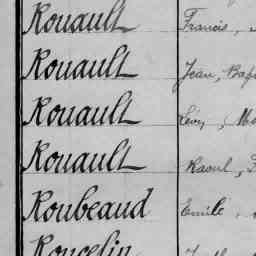 Rouault Francis,
Rouault Jean, Bap
Rouault Léon, Ma
Rouault Raoul,
Roubeaud Emile,
Roucelin